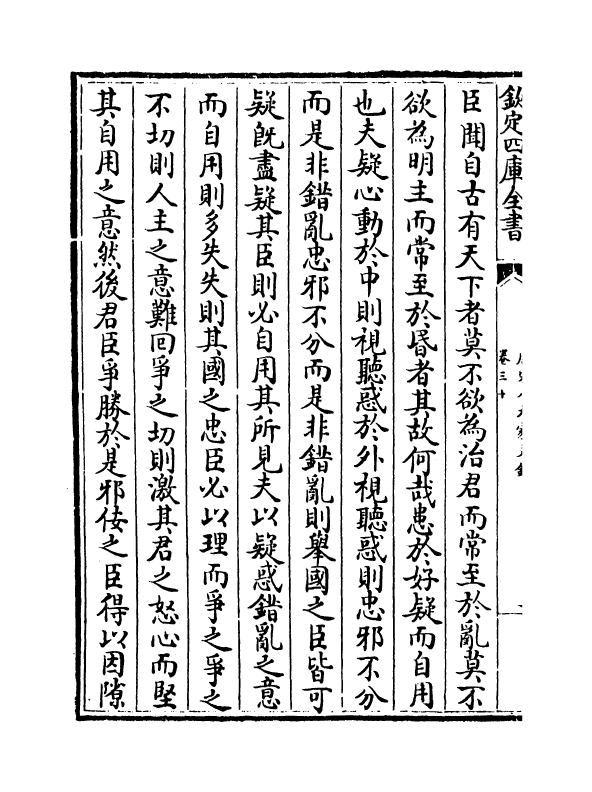 欽定四庫全書
卷三十
臣聞自古有天下者莫不欲為治君而常至於亂莫不
欲為明主而常至於昏者其故何哉患於好疑而自用
也夫疑心動於中則視聽惑於外視聽惑則忠邪不分
而是非錯亂忠邪不分而是非錯亂則舉國之臣皆可
疑旣盡疑其臣則必自用其所見夫以疑惑錯亂之意
而自用則多失失則其國之忠臣必以理而爭之爭之
不切則人主之意難回爭之切則激其君之怒心而堅
其自用之意然後君臣爭勝於是邪佞之臣得以因隙